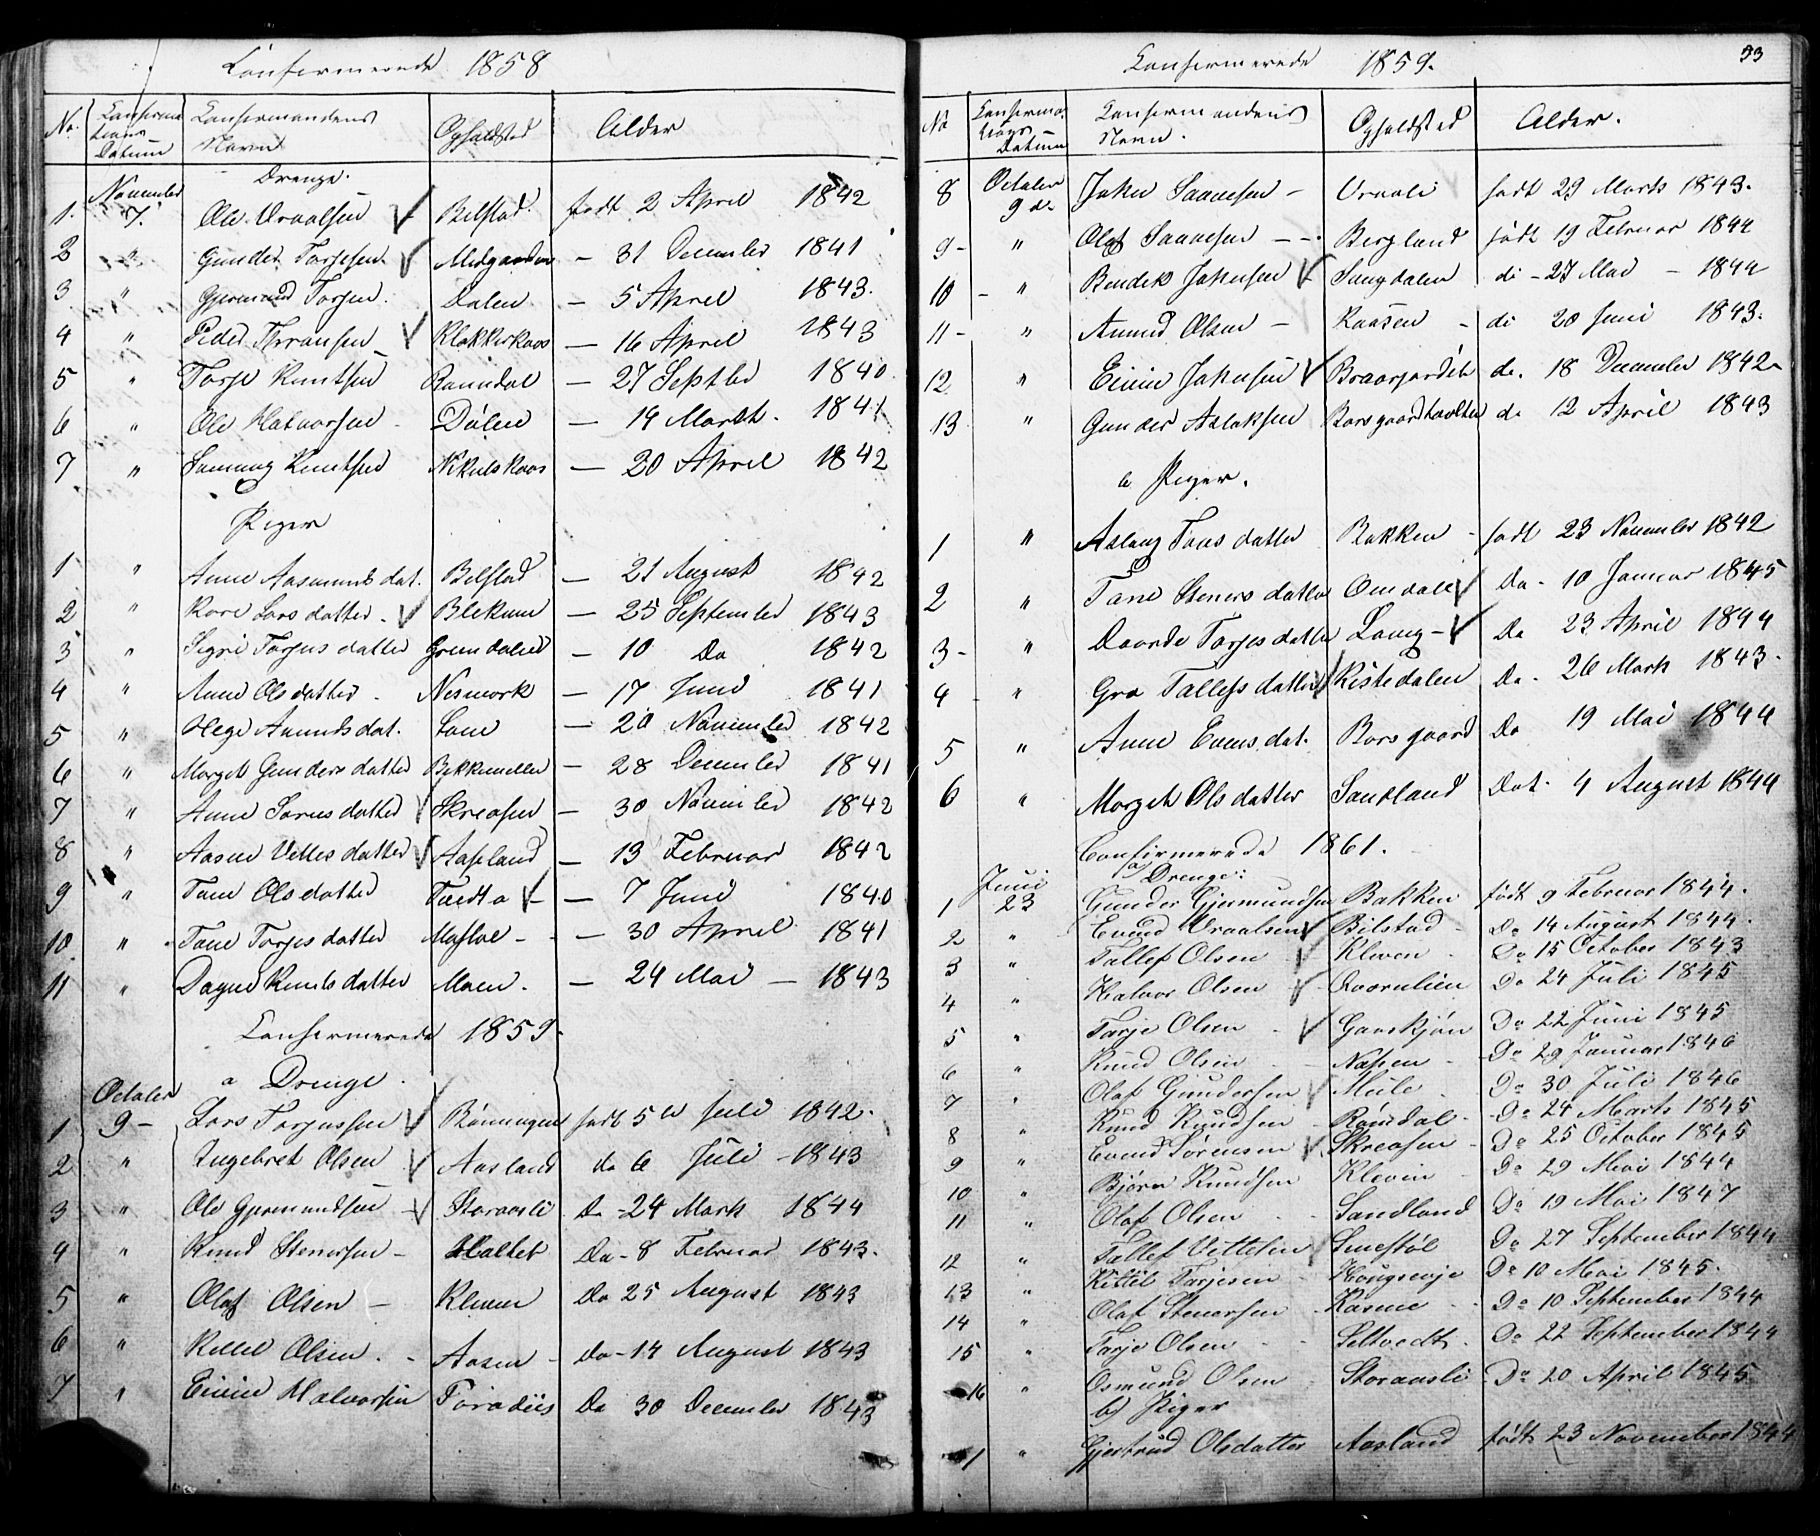 Confirmerede 1858
No. Confirmations Datum Confirmandens Navn Opholdsted Alder
Drenge.
November
1. 7. Ole Uraalsen Bilstad født 2 April 1842
2 " Gunder Torjesen Midgarden - 31 December 1841
3. " Gjermund Torjsen. Dalen - 5 April 1843.
4 " Peder Klokkerkaas - 16 April 1843
5 " Torje Knutsen Ramdal - 27 Septbr 1840.
6 " Ole Halvorsen Dålen - 19 Marts. 1841
7 " Knutsen Nikulskaas - 20 April 1842
Piger
1 " Anne Aasmunds dat. Bilstad - 21 August 1842
2 " Kare Lars datter. Blekum - 25 September 1843
3 " Sigri Torjus datter - 10 Do 1842
4 " Anne Olsdatter. Nesmark - 17 Juni 1841
5 " Hege Anunds dat. - 20 November 1842
6 " Margit Gunders datter - 28 December 1841
7 " Anne datter Skreosen - 30 November 1842
8 " Aasne Vetles datter Aasland - 13 Februar 1842
9 " Tone Olsdatter Tvedto - 7 Juni 1840
10. " Tone Torjes datter - 30 April 1841
11 " Dagne Knuts datter Moen. - 24 Mai - 1843
Confirmerede 1859.
a Drenge.
October
1 9 - Lars Torjussen Rønningen født 5te Juli 1842.
2 " Ingebret Olsen Aasland do 6 Juli - 1843
3 " Ole Gjermundsen Storaasli Do - 24 Marts 1844
4 " Knud Stenersen - Haltet Do - 8 Februar 1843.
5 " Olaf Olsen - Kleven Do 25 August 1843
6 " Kittel Olsen. - Aasen - Do - 14 August 1843
7 " Eivin Halvorsen Do 30 December 1843
Confirmerede 1859.
33
No Confirmations Datum Confirmandens Navn. Opholdsted Alder.
8 October 9de John Saavesen - Uraali født 29 Marts 1843.
9 - " Olaf Saavesen - - . Bergland født 19 Februar 1844
10 - " Bendik Johnsen Songdalen do - 27 Mai - 1844
11 - " Anund Olsen - Kaasen - do 20 Juni 1843.
12 " Eivin Johnsen Braarjordet do. 18 December 1842.
13 " Gunder Aslaksen Borsgaardhaolten do 12 April 1843
b Piger.
1 " Aslaug datter Bakken - født 23 November 1842
2 " Tone Steners datter Omdal Do - 10 Januar 1845
3 - " Torjes datter Loug - Do 23 April 1844
4 - " Gro Tallefs datter Ristedalen Do - 26 Marts 1843.
5 " Anne Evens dat. Borsgaard Do 19 Mai 1844
6 " Margit Olsdatter Sandland Dat. 4 August 1844
Confirmerede 1861.
a) Drenge:
Juni
1 23 Gunder Gjermundsen Bakken født 9 Februar 1844.
2 " Evend Uraalsen Bilstad - Do 14 August 1844.
3 " Tallef Olsen Kleven - Do 15 October 1843
4 " Halvor Olsen - Qvernlien Do 24 Juli 1845
5 " Torje Olsen - Gaaskjøn Do 22 Juni 1845
6 " Knud Olsen - Napen - Do 29 Januar 1846
7 " Olaf Gundersen Mule. Do 30 Juli 1846
8 " Knud Knudsen - Rømdal - Do 24 Marts 1845
9 " Evend Sørensen Skreosen - Do 25 October 1845
10 " Bjørn Knudsen Klevin - Do 29 Mai 1844
11 " Olaf Olsen - - Sandland Do 19 Mai 1847
12 " Tallef Vettesen Smestøl Do 27 September 1844
13 " Kittil Torjesen - Do 10 Mai 1845.
14 " Olaf Stenersen - - Do 10 September 1844
15 " Torje Olsen - - Seltvedt - Do 22 September 1844
16 " Osmund Olsen Storaasli Do 20 April 1845
b) Piger
1 " Gjertrud Olsdatter Aasland født 23 November 1844